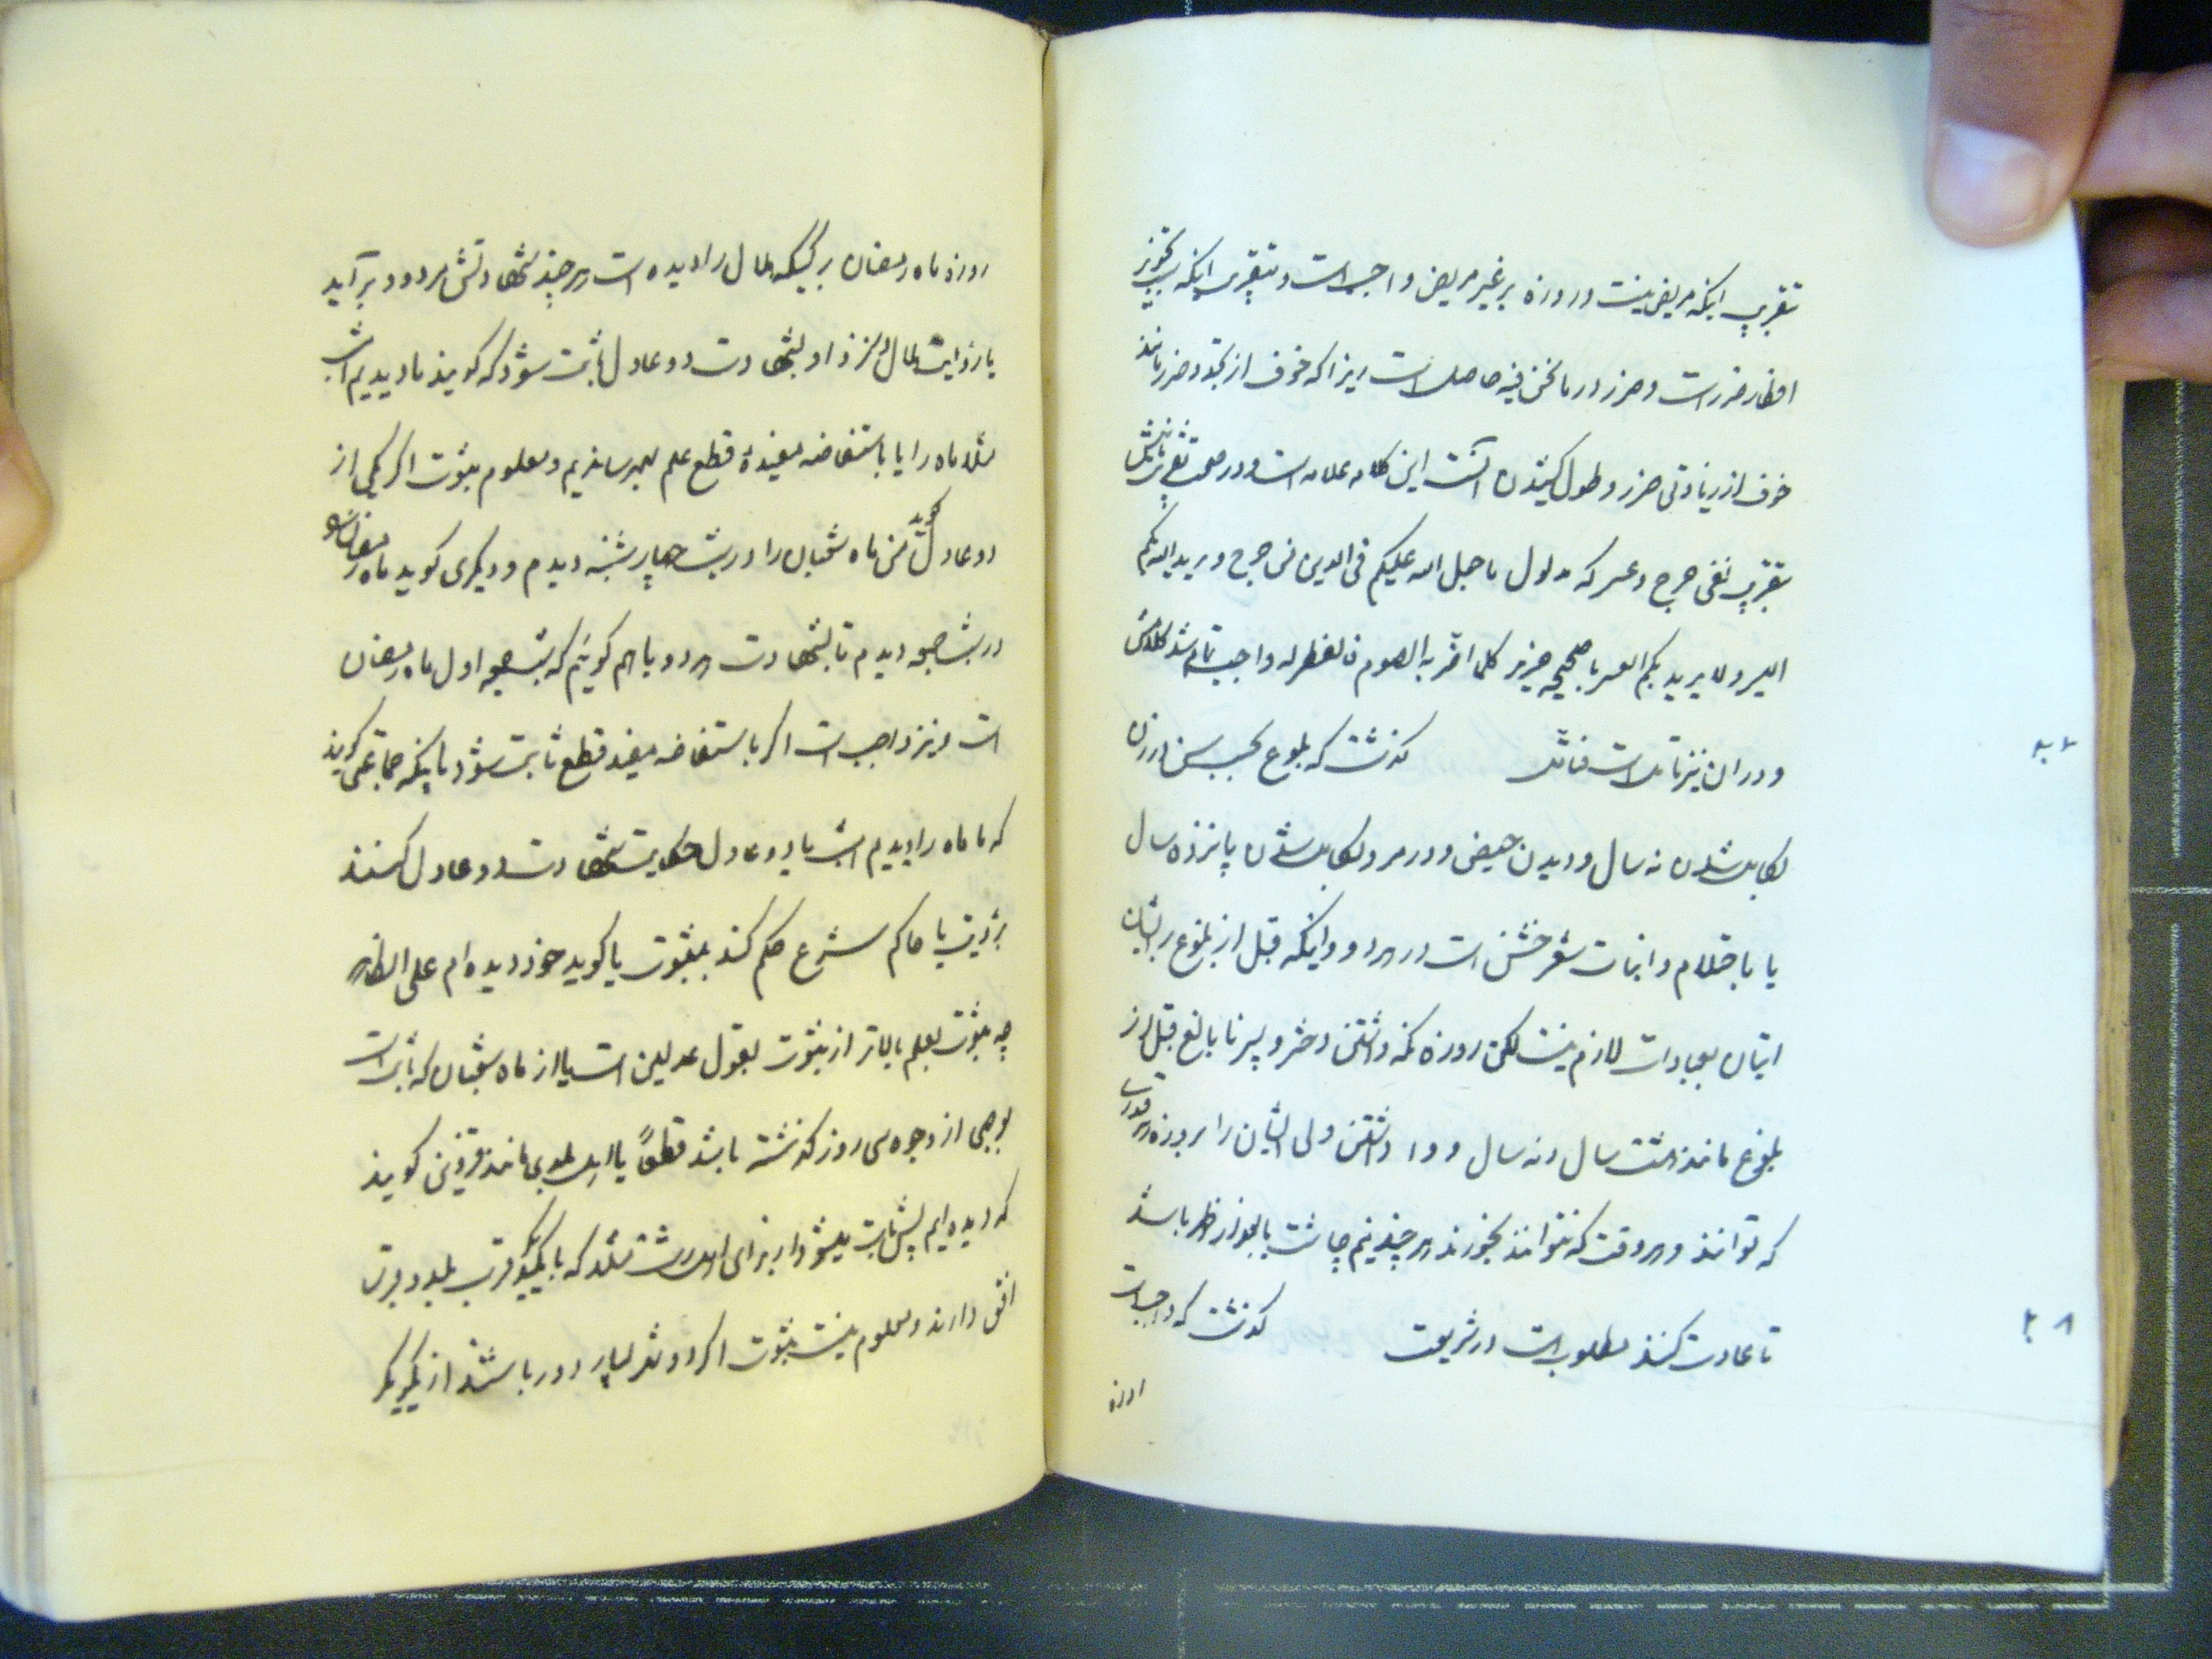 تقریب اینکه مریض نیست و روزه بر غیر مریض واجب است و بتقریب اینکه سبب تجویز
افطار ضرر است و ضرر در ما نحن فیه حاصل است زیرا که خوف از تجدد ضرر مانند
خوف از زیادتی ضرر و طول کشیدن آنست این کلام علامه است و در صحت تقریب
بتقریب نفی حرج و عسر که مدلول ما جعل الله علیکم فی الدین من حرج و یرید الله بکم
الیسر و لا یرید بکم العسر با صحیحه حریز کلما اضر به الصوم فالفطر له واجب تمام شد کلامش
و در ان نیز تامل است فتامل گذشت که بلوغ بحسب سن در زن
بکامل شدن نه سال و دیدن حیض و در مرد بکامل شدن پانزده سال
یا باحتلام و انبات شعر خشن است در هر دو و اینکه قبل از بلوغ بر ایشان
اتیان بعبادات لازم نیست لکن روزه نگه داشتن دختر و پسر نابالغ قبل از
بلوغ مانند هشت سال و نه سال و وا داشتن ولی ایشان را بروزه بهر قدری
که توانند و هر وقت که نتوانند بخورند هر چند نیم چاشت یا بعد از ظهر باشد
تا عادت کنند مطلوب است در شریعت گذشت که واجب است
۲۸
روزه
روزه ماه رمضان بر کسیکه هلال را دیده است هر چند شهادتش مردود برآید
یا رؤیت هلال نزد او بشهادت دو عادل ثابت شود که گویند ما دیدیم امشب
مثلا ماه را یا باستفاضه مفیده قطع علم بهم رسانیم و معلوم نیست اگر یکی از
دو عادل گوید من ماه شعبان را در شب چهارشنبه دیدم و دیگری گوید ماه رمضان را
در شب جمعه دیدم تا بشهادت هر دو با هم گوئیم که شب جمعه اول ماه رمضان
است و نیز واجب است اگر باستفاضه مفید قطع ثابت شود باینکه جماعتی گویند
که ما ماه را دیدیم امشب یا دو عادل حکایت شهادت دو عادل کنند
برؤیت یا حاکم شرع حکم کند بثبوت یا گوید خود دیده ام علی الظاهر
چه ثبوت بعلم بالاتر از ثبوت بقول عدلین است یا از ماه شعبان که ثابت است
بوجهی از وجوه سی روز گذشته باشد قطعاً یا اهل بلدی مانند قزوین گویند
که دیده ایم پس ثابت میشود برای اهل رشت مثلا که با یکدیگر قرب بلد و قرب
افق دارند و معلوم نیست ثبوت اگر دو بلد بسیار دور باشند از یکدیگر